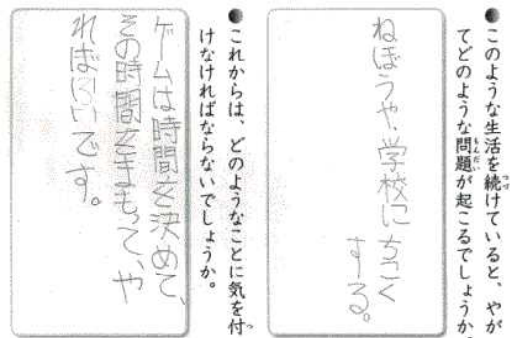 ●このような生活を続けていると、やが
てどのような問題が起こるでしょうか。
ねぼうや、学校に
ちこく
する。
●これからは、どのようなことに気を付
けなければならないでしょうか。
ゲームは時間を決めて、
その時間をまもって、や
ればいいです。